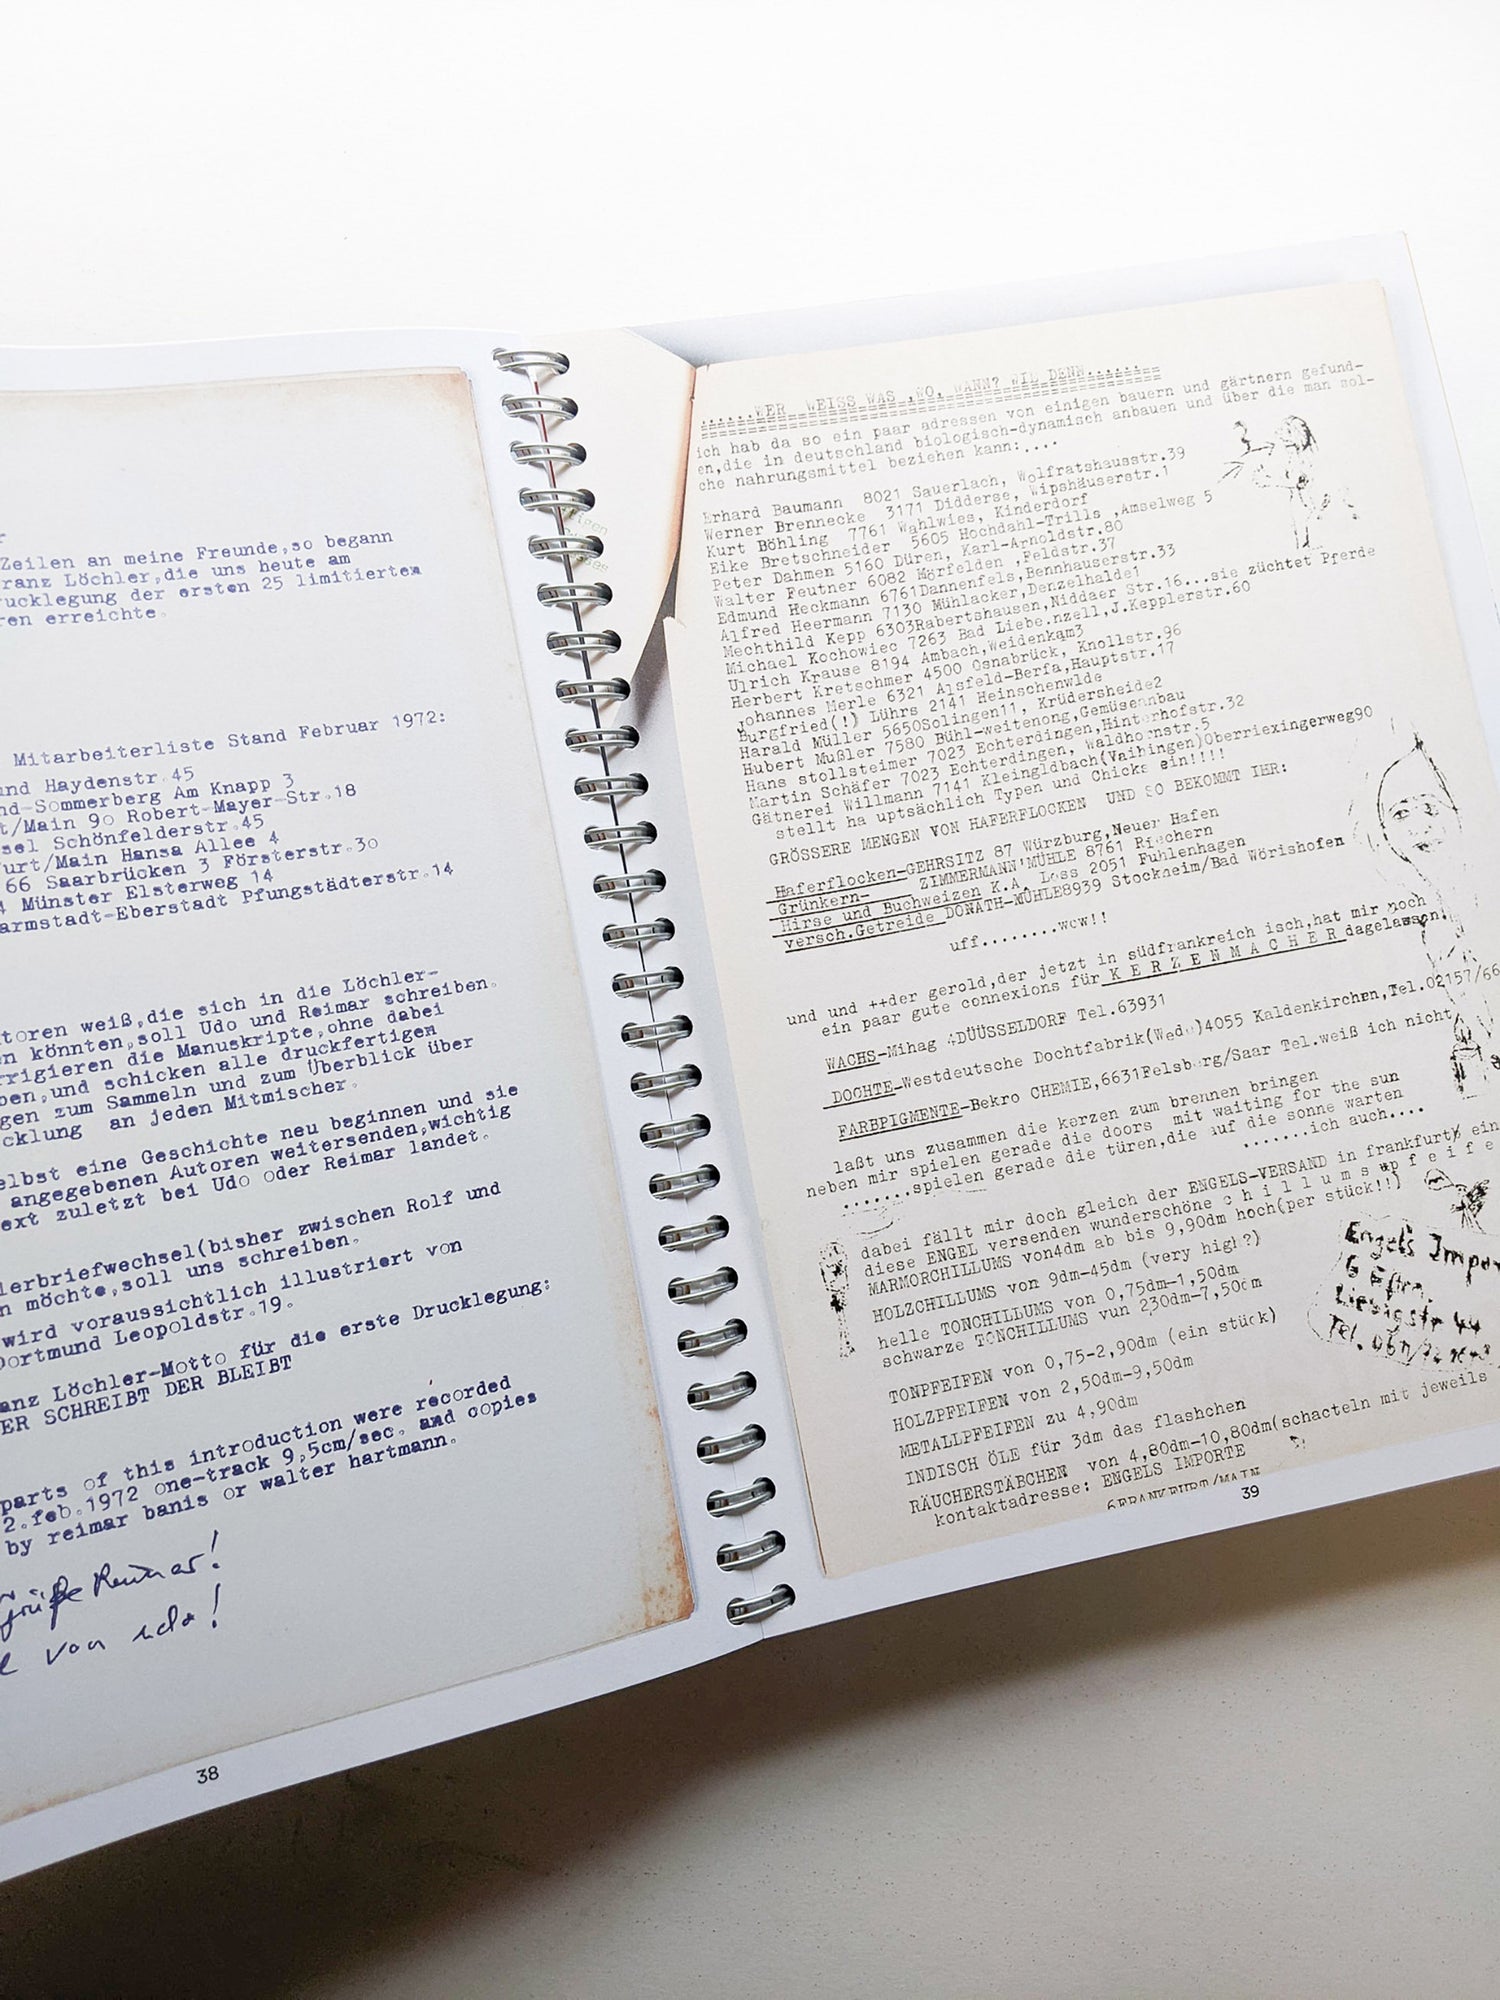 Zeilen an meine Freunde,so begann
ranz Löchler,die uns heute am
rucklegung der ersten 25 limitierten
ren erreichte.
Mitarbeiterliste Stand Februar 1972:
und Haydenstr.45
nd-Sommerberg Am Knapp 3
t/Main 90 Robert-Mayer-Str.18
sel Schönfelderstr.45
furt/Main Hansa Allee 4
66 Saarbrücken 3 Försterstr.30
4 Münster Elsterweg 14
armstadt-Eberstadt Pfungstädterstr.14
toren weiß,die sich in die Löchler-
en könnten,soll Udo und Reimar schreiben.
rrigieren die Manuskripte,ohne dabei
ben,und schicken alle druckfertigen
gen zum Sammeln und zum Überblick über
cklung an jeden Mitmischer.
elbst eine Geschichte neu beginnen und sie
angegebenen Autoren weitersenden,wichtig
ext zuletzt bei Udo oder Reimar landet.
lerbriefwechsel(bisher zwischen Rolf und
n möchte,soll uns schreiben.
wird voraussichtlich illustriert von
Dortmund Leopoldstr.19.
anz Löchler-Motto für die erste Drucklegung:
ER SCHREIBT DER BLEIBT
parts of this introduction were recorded
2.feb.1972 one-track 9,5cm/sec. and copies
by reimar banis or walter hartmann.
Grüße Reimar!
von udo!
38
......WER WEISS WAS ,WO, WANN? WIE DENN......
ich hab da so ein paar adressen von einigen bauern und gärtnern gefund-
en,die in deutschland biologisch-dynamisch anbauen und über die man sol-
che nahrungsmittel beziehen kann:....
Erhard Baumann 8021 Sauerlach, Wolfratshausstr.39
Werner Brennecke 3171 Didderse, Wipshäuserstr.1
Kurt Böhling 7761 Wahlwies, Kinderdorf
Eike Bretschneider 5605 Hochdahl-Trills ,Amselweg 5
Peter Dahmen 5160 Düren, Karl-Arnoldstr.80
Walter Feutner 6082 Mörfelden ,Feldstr.37
Edmund Heckmann 6761Dannenfels,Bennhauserstr.33
Alfred Heermann 7130 Mühlacker,Denzelhalde1
Mechthild Kepp 6303Rabertshausen,Niddaer Str.16...sie züchtet Pferde
Michael Kochowiec 7263 Bad Liebe.nzell,J.Kepplerstr.60
Ulrich Krause 8194 Ambach,Weidenkam3
Herbert Kretschmer 4500 Osnabrück, Knollstr.96
Johannes Merle 6321 Alsfeld-Berfa,Hauptstr.17
Burgfried(!) Lührs 2141 Heinschenwlde
Harald Müller 5650Solingen11, Krüdersheide2
Hubert Mußler 7580 Bühl-weitenong,Gemüseanbau
Hans stollsteimer 7023 Echterdingen,Hinterhofstr.32
Martin Schäfer 7023 Echterdingen, Waldhornstr.5
Gätnerei Willmann 7141 Kleingldbach(Vaihingen)Oberriexingerweg90
stellt ha uptsächlich Typen und Chicks ein!!!!
GRÖSSERE MENGEN VON HAFERFLOCKEN UND SO BEKOMMT IHR:
Haferflocken-GEHRSITZ 87 Würzburg,Neuer Hafen
Grünkern- ZIMMERMANN'MÜHLE 8761 Riechern
Hirse und Buchweizen K.A. Loss 2051 Fuhlenhagen
versch.Getreide DONATH-MÜHLE8939 Stockheim/Bad Wörishofen
uff........wow!!
und und ++der gerold,der jetzt in südfrankreich isch,hat mir noch
ein paar gute connexions für K E R Z E N M A C H E R dagelassen!
WACHS-Mihag 4DÜÜSSELDORF Tel.63931
DOCHTE-Westdeutsche Dochtfabrik(Wedo)4055 Kaldenkirchen,Tel.02157/66
FARBPIGMENTE-Bekro CHEMIE,6631Felsberg/Saar Tel.weiß ich nicht
laßt uns zusammen die kerzen zum brennen bringen
neben mir spielen gerade die doors mit waiting for the sun
.......spielen gerade die türen,die auf die sonne warten
.......ich auch....
dabei fällt mir doch gleich der ENGELS-VERSAND in frankfurt ein
diese ENGEL versenden wunderschöne c h i l l u m s p f e i f e
MARMORCHILLUMS von4dm ab bis 9,90dm hoch(per stück!!)
HOLZCHILLUMS von 9dm-45dm (very high?)
helle TONCHILLUMS von 0,75dm-1,50dm
schwarze TONCHILLUMS vun 230dm-7,50dm
TONPFEIFEN von 0,75-2,90dm (ein stück)
HOLZPFEIFEN von 2,50dm-9,50dm
METALLPFEIFEN zu 4,90dm
INDISCH ÖLE für 3dm das flashchen
RÄUCHERSTÄBCHEN von 4,80dm-10,80dm(schacteln mit jeweils
kontaktadresse: ENGELS IMPORTE
6FRANKFURT/MAIN
Engels Impor
6 Ffm.
Liebigstr 44
Tel.
39